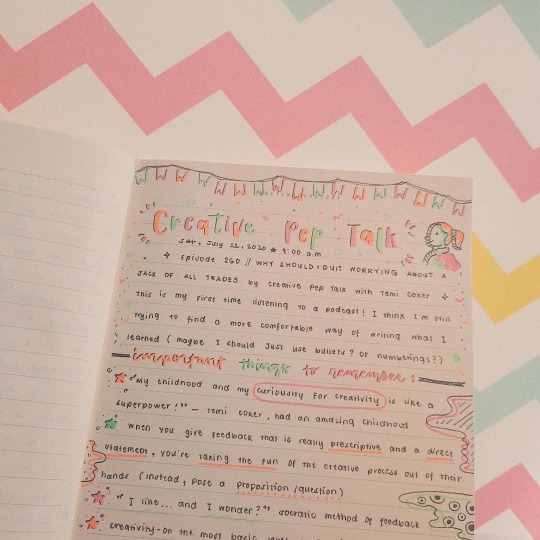 Creative Pep Talk
SAT, July 11, 2020 ★ 9:00 a.m
Episode 260 // WHY SHOULD I QUIT WORRYING ABOUT A
JACK OF ALL TRADES by creative Pep Talk with Temi Coker
This is my first time listening to a podcast! I think I'm still
trying to find a more comfortable way of writing what I
learned (maybe I should just use bullets? or numberings?)
important things to remember:
"My childhood and my curiousity for creativity is like a
superpower!" - Temi Coker, had an amazing childhood
when you give feedback that is really prescriptive and a direct
statement, you're taking the fun of the creative process out of their
hands (instead, pose a proposition/question)
"I like... and I wonder?" socratic method of feedback
creativity-on the most basic